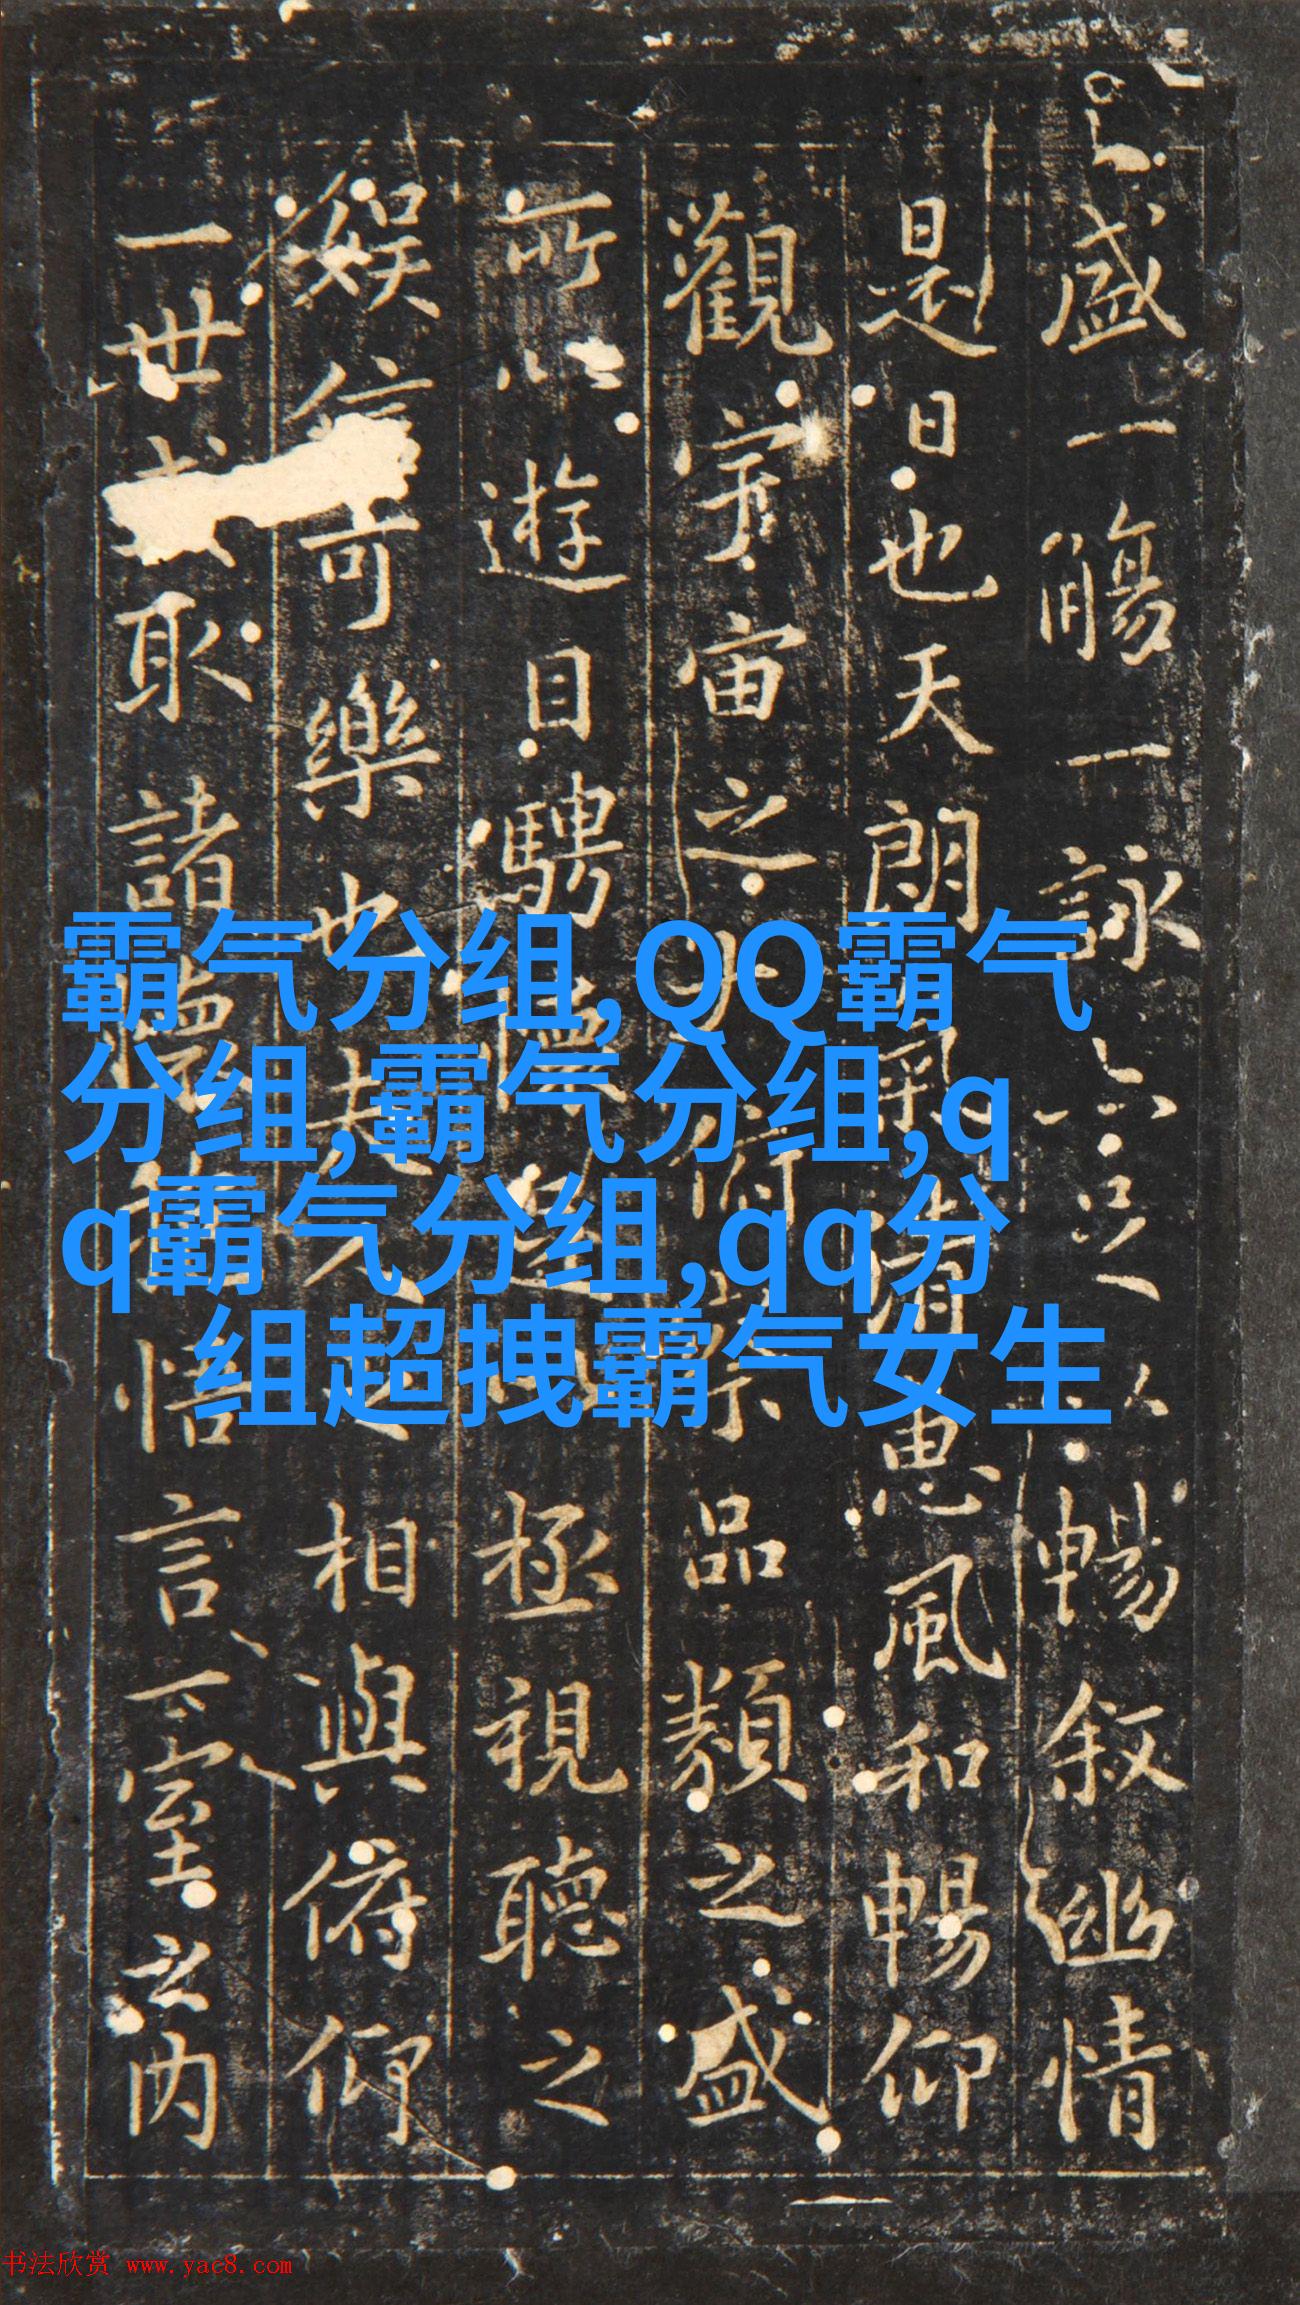 盛一觴一詠亦足以暢叙幽情
是日也天朗氣清惠風和暢仰
觀宇宙之大俯察品類之盛
所以遊目騁懷足以極視聽之
娛信可樂也夫人之相與俯仰
一世或取諸懷抱悟言一室之内
霸气分组,QQ霸气
分组,霸气分组,q
q霸气分组,qq分
组超拽霸气女生
书法欣赏 www.yac8.com